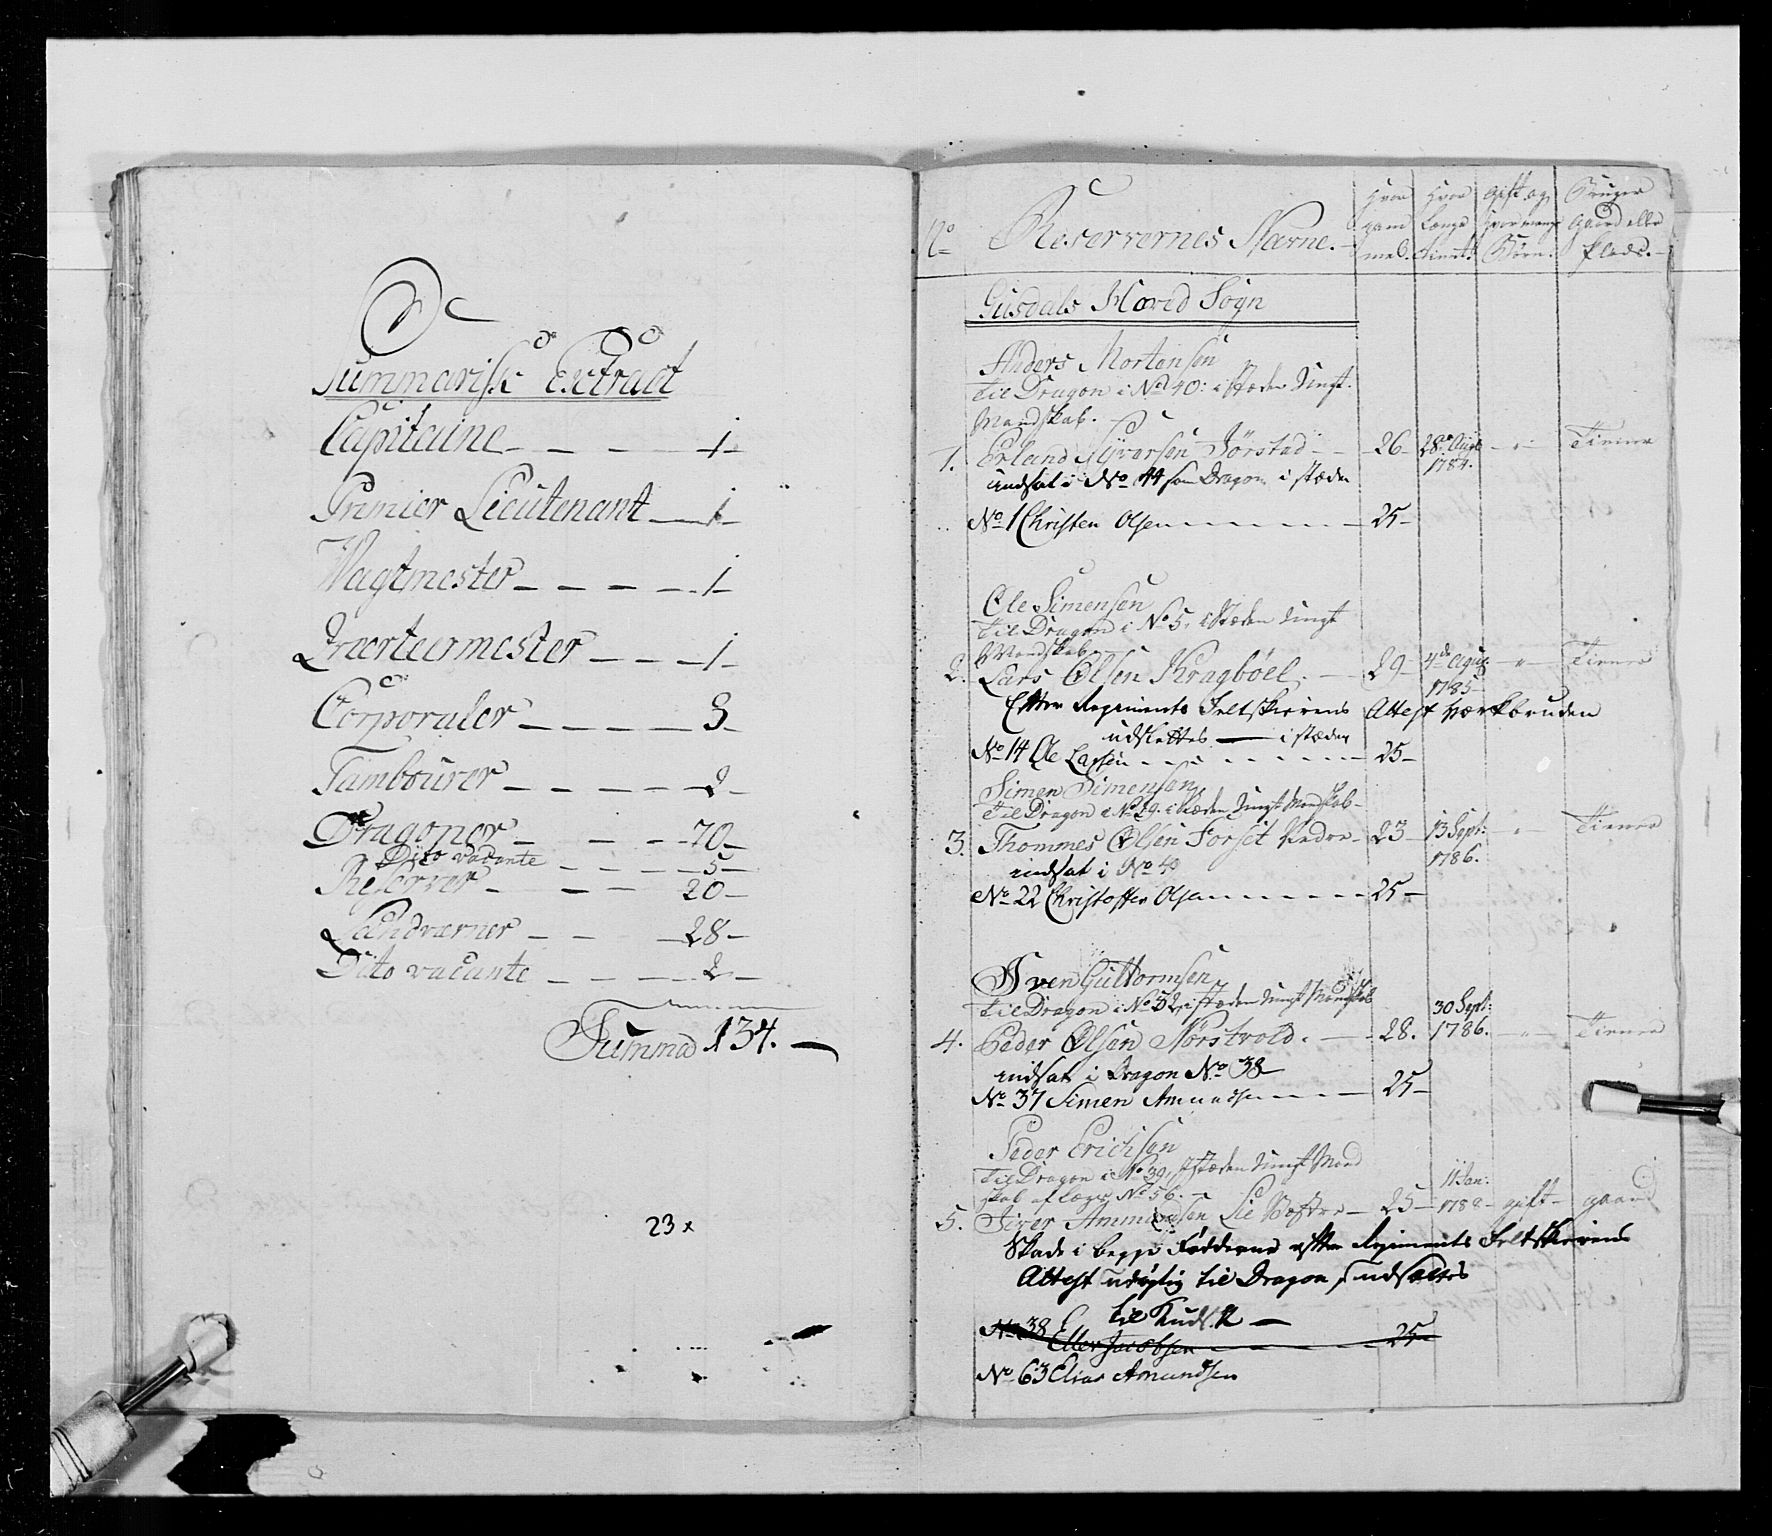 Summarisk Extract
Capitaine - - - - 1 -
Premier Lieutenant - 1 -
Wagtmester - - - - 1 -
Qvarteermester - - - 1 -
Corporaler - - - - 3 -
Tambourer - - - - 2 -
Dragoner - - - 70 -
Dito vacante - - - 5 -
Reserver - - - 20 -
Landværner - - - 28 -
Dito vacante - - - - 2 -
Summa 134. -
23 x
No Reservernes Navne. -
Hvor gam mel.
Hvor Længe tient.
Gift og hvor mange Børn.
Bruger Gaard eller Plads. -
Gusdals Hoved Sogn
Anders Mortensen
til Dragon i No 40: i stæden Ungt
Mandskab.
1. Erland Syversen Jörstad - - 26 - 28de Augt 1784. - " - Tiener
indsat i No 44 som Dragon i stæden
No 1 Christen Olsen - - - - - - 25 -
Ole Simensen
til Dragon i No 5, i Stæden Ungt
Mandskab
2. Lars Olsen Kragböel. - 29 - 4de Agus: 1785 - " - Tiener
Efter Regiments Feltskierens Attest Værkbruden
udslettes - i stæden
No 14 Ole Larsen - - - - - - 25 -
Simen Simensen
til Dragon i No 29. i Stæden Ungt Mandskab -
3. Thommes Olsen Forset Nedre - 23 - 13 Sept: 1786. " Tiener
indsat i No 40
No 22 Christoffer Olsen - - - - - 25 -
Sven Guttormsen
til Dragon i No 52, i stæden Ungt Mandskab
4. Peder Olsen Nörstvold. - 28. 30 Sept: 1786. - " - Tiener
indsat i Dragon No 38
No 37 Simen Amundsen - - - 25 -
Peder Erichsen
til Dragon i No 39, i stæden Ungt Mand
skab af lægd No 56. -
5. Siver Ammundsen Lie Vestre - 25 - 11 Jan: 1788 - gift - gaard
Skade i begge Födderne efter Regiments Feltskierens
Attest udygtig til Dragon, udsættes
til Kudsk -
No 38 Eller Jacobsen - - - - 25 -
No 63 Elias Amundsen